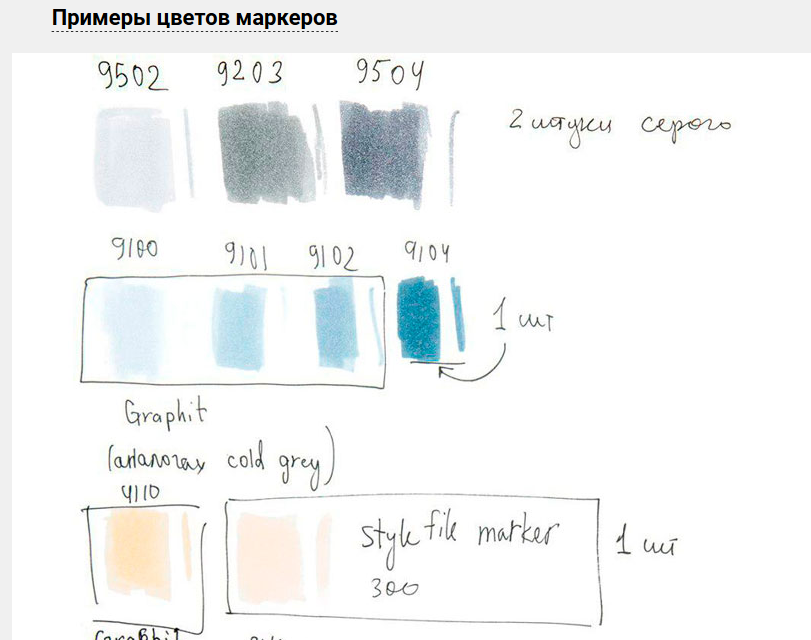 Примеры цветов маркеров
9502 9203 9504
2 штуки серого
9100 9101 9102 9104
1 шт
Graphit
(аналогах cold grey)
4110
style file marker
300
1 шт
Graphit